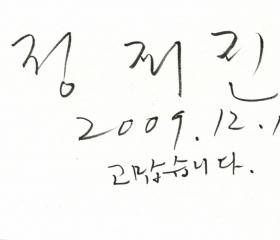 정재진
2009.12.1
고맙습니다.